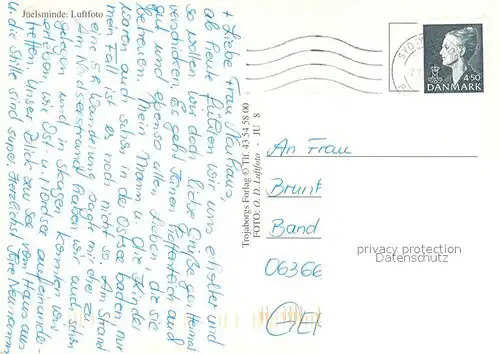 Juelsminde: Luftfoto
+ Liebe Frau Neuhaus,
ab heute fühlen wir uns erholter und
so wollen wir doch liebe Grüße gen Heimat
verschicken. Es geht Ihnen hoffentlich auch
gut und ebenso allen Lieben, die sie
betreuen. Mein Mann u. die Kinder
waren auch schon in der Ostsee baden, nur
mein Fall ist es noch nicht so. Am Strand
eine Wanderung sagt mir die zu.
Am Nordseestrand haben wir auch schon
gelegen und in Skagen konnten wir
erleben wie Ost- u. Nordsee aufeinander-
treffen. Unser Blick zur See vom Haus aus
u. die Stille sind super. Herzlichst Ihre Neumanns
Trojaborgs Forlag © Tlf. 43 54 58 00
FOTO: O. D. Luftfoto - JU 8
SYD
4.50
DANMARK
An Frau
Brunf
Band
06366
GER
privacy protection
Datenschutz